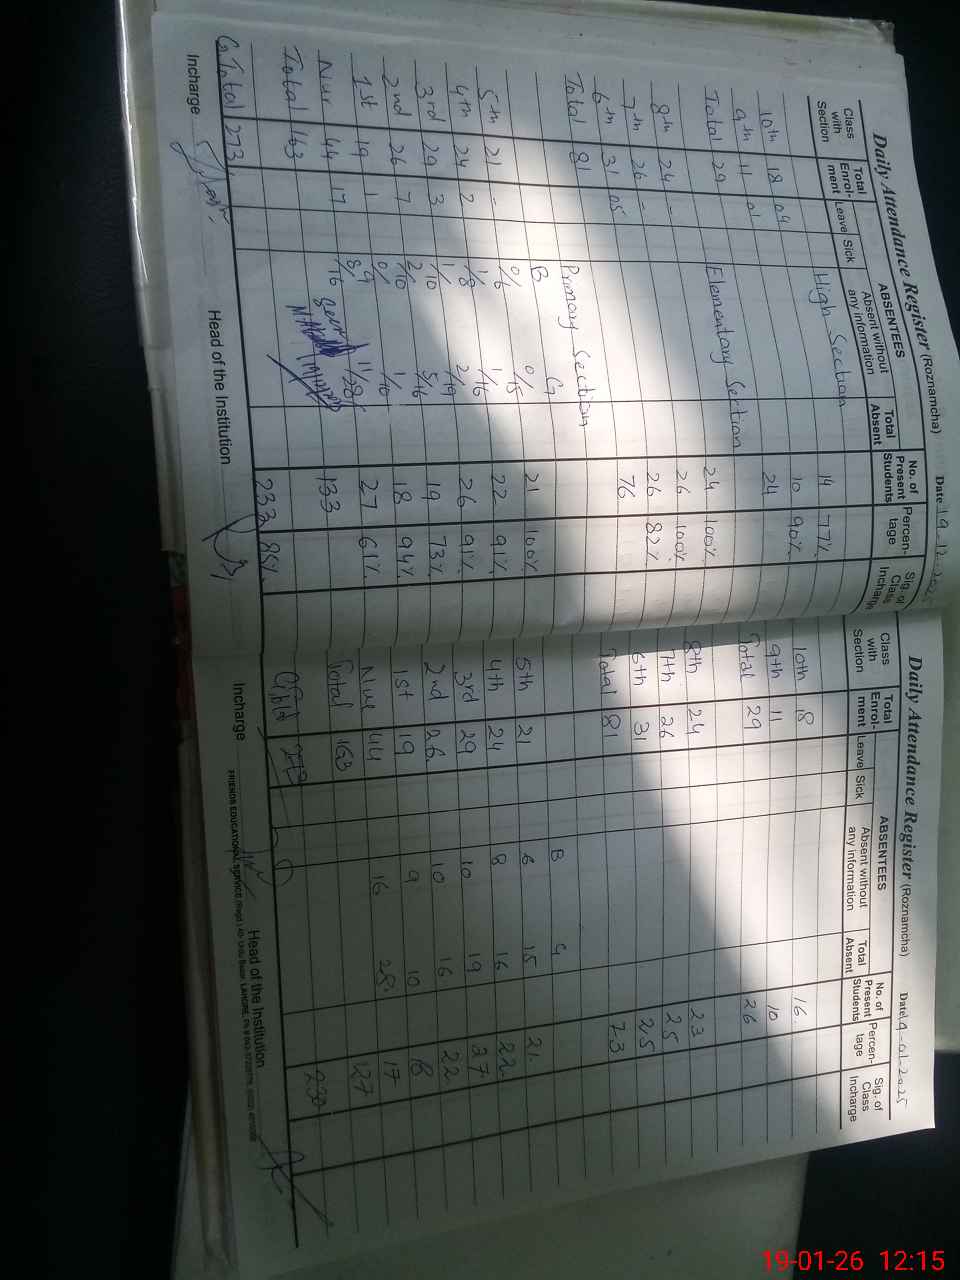 Daily Attendance Register (Roznamcha) Date 19-12-2025
Class with Section Total Enrol-ment ABSENTEES No. of Present Students Percen-tage Sig. of Class Incharge
Leave Sick Absent without any information Total Absent
High Section
10th 18 04 14 77%
9th 11 01 10 90%
Total 29 24
Elementary Section
8th 24 - 24 100%
7th 26 - 26 100%
6th 31 05 26 82%
Total 81 76
Primary Section
B G
5th 21 - 0/6 0/15 21 100%
4th 24 2 1/8 1/16 22 91%
3rd 29 3 1/10 2/19 26 91%
2nd 26 7 2/10 5/16 19 73%
1st 19 1 0/9 1/10 18 94%
Nur 44 17 8/16 11/28 27 61%
Total 163 133
G Total 273 233 85%
Incharge Head of the Institution
Daily Attendance Register (Roznamcha) Date 19-01-2025
Class with Section Total Enrol-ment ABSENTEES No. of Present Students Percen-tage Sig. of Class Incharge
Leave Sick Absent without any information Total Absent
10th 18 16
9th 11 10
Total 29 26
8th 24 23
7th 26 25
6th 31 25
Total 81 73
B G
5th 21 6 15 21
4th 24 8 16 22
3rd 29 10 19 27
2nd 26 10 16 22
1st 19 9 10 18
Nur 44 16 28 17
Total 163 127
G Total 273 230
Incharge Head of the Institution
FRIENDS EDUCATIONAL SERVICE (Regd.) 40- Urdu Bazar LAHORE
19-01-26 12:15